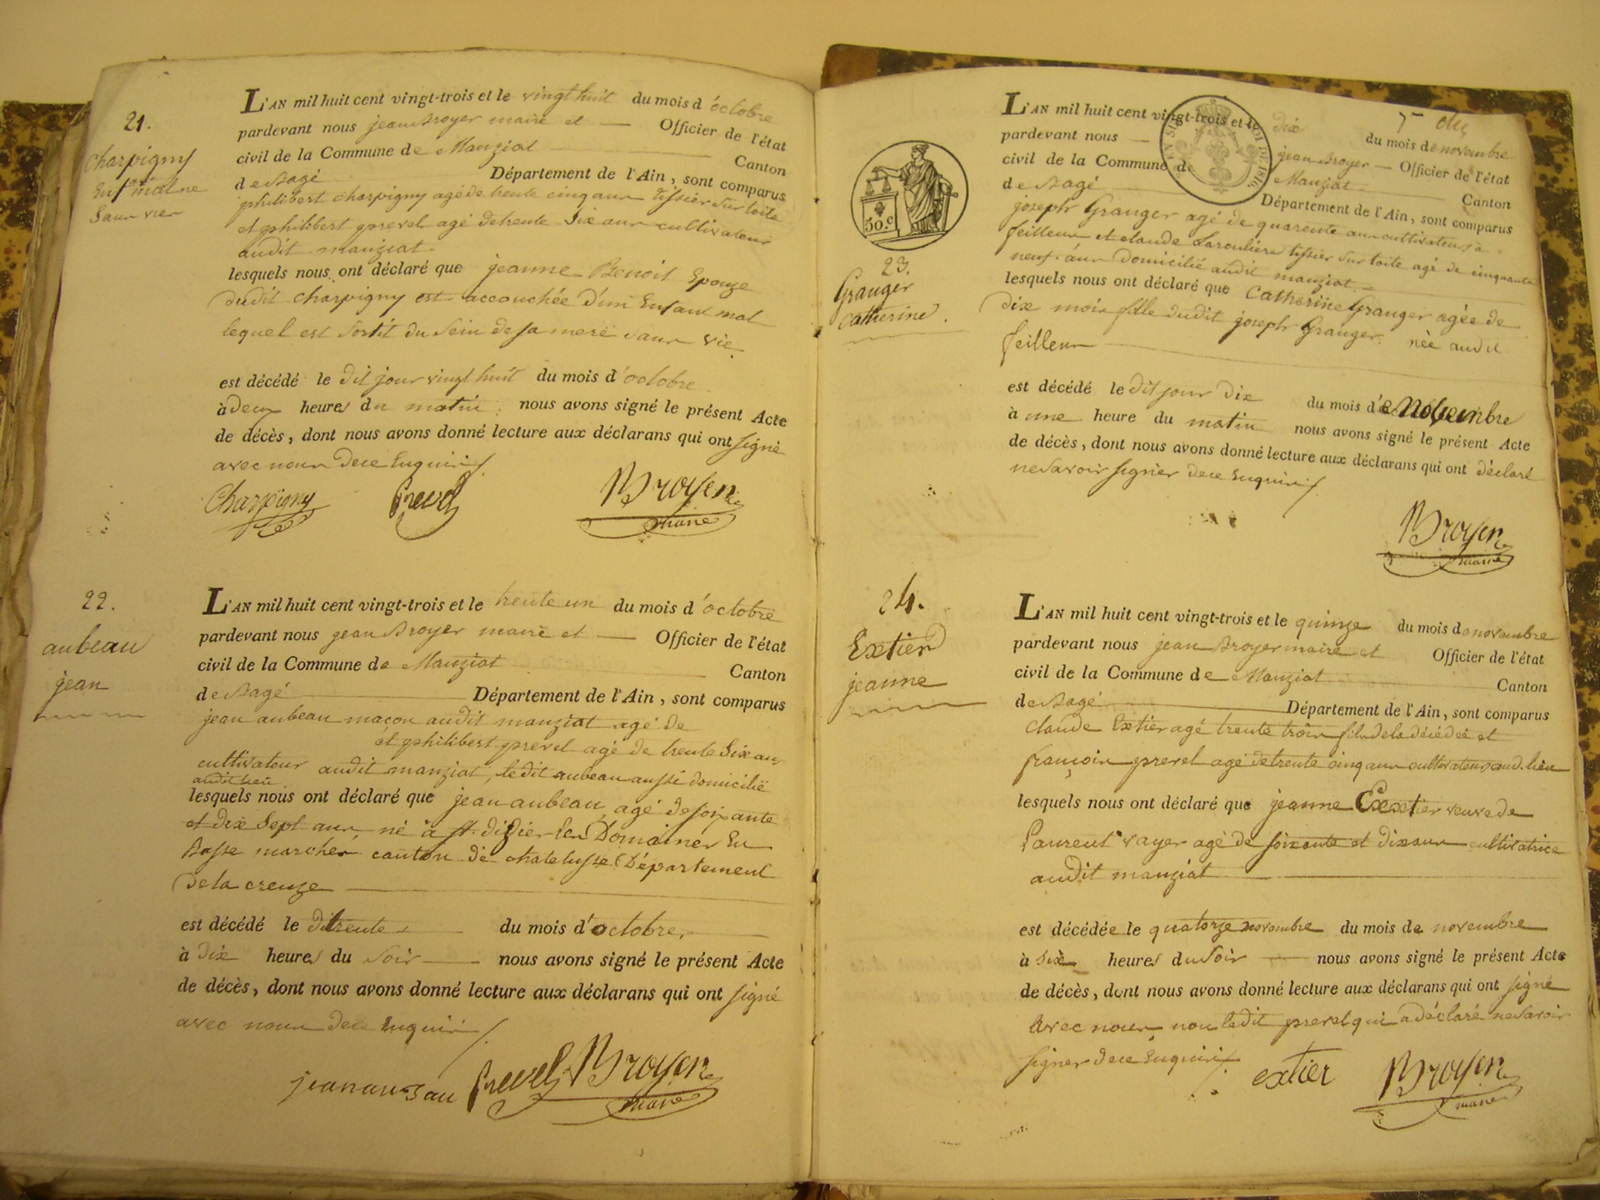 21.
Charpigny
Enf. mal ne
sans vie
L'AN mil huit cent vingt-trois et le vingt huit du mois d'octobre
pardevant nous jean Broyer maire et Officier de l'état
civil de la Commune de Manziat Canton
de Bagé Département de l'Ain, sont comparus
philibert charpigny agé de trente cinq ans tissier sur toile
et philibert prevel agé de trente Six ans cultivateurs
audit manziat.
lesquels nous ont déclaré que jeanne Benoit Epouze
dudit charpigny est accouchée d'un Enfant mal
lequel est Sortit du Sein de sa mere sans vie
est décédé le dit jour vingt huit du mois d'octobre
à deux heures du matin nous avons signé le présent Acte
de décès, dont nous avons donné lecture aux déclarans qui ont signé
avec nous de ce Enquis
Charpigny Prevel Broyer
maire
22.
aubeau
jean
L'AN mil huit cent vingt-trois et le trente un du mois d'octobre
pardevant nous jean Broyer maire et Officier de l'état
civil de la Commune de Manziat Canton
de Bagé Département de l'Ain, sont comparus
jean aubeau maçon audit manziat agé de
et philibert prevel agé de trente Six ans
cultivateur audit manziat, ledit aubeau aussi domicilié
audit lieu
lesquels nous ont déclaré que jean aubeau, agé de soixante
et dix Sept ans, né à St. didier les Domaines En
Basse marche canton de chatelusse Département
de la creuze
est décédé le dit trente du mois d'octobre
à Dix heures du Soir nous avons signé le présent Acte
de décès, dont nous avons donné lecture aux déclarans qui ont signé
avec nous de ce Enquis
jean aubau Prevel Broyer
maire
50.c
23.
Granger
catherine.
L'AN mil huit cent vingt-trois et le dix du mois de novembre
pardevant nous jean Broyer Officier de l'état
civil de la Commune de Manziat Canton
de Bagé Département de l'Ain, sont comparus
joseph Granger agé de quarente ans cultivateur à
feilleur et claude Laroulière tissier sur toile agé de cinquante
neuf ans Domicilié audit manziat
lesquels nous ont déclaré que Catherine Granger agée de
dix mois fille dudit joseph Granger née audit
feilleur
est décédé le dit jour dix du mois de Novembre
à une heure du matin nous avons signé le présent Acte
de décès, dont nous avons donné lecture aux déclarans qui ont déclaré
ne Savoir signer de ce Enquis
Broyer
maire
24.
Extier
jeanne
L'AN mil huit cent vingt-trois et le quinze du mois de novembre
pardevant nous jean Broyer maire et Officier de l'état
civil de la Commune de Manziat Canton
de Bagé Département de l'Ain, sont comparus
claude Extier agé trente trois fils de la décédée et
françois prevel agé de trente cinq ans cultivateurs aud. lieu
lesquels nous ont déclaré que jeanne Exetier veuve de
Laurent vayer agé de soixante et dix ans cultivatrice
audit manziat
est décédée le quatorze novembre du mois de novembre
à six heures du Soir nous avons signé le présent Acte
de décès, dont nous avons donné lecture aux déclarans qui ont signé
avec nous non ledit prevel qui a déclaré ne Savoir
signer de ce Enquis
extier Broyer
maire